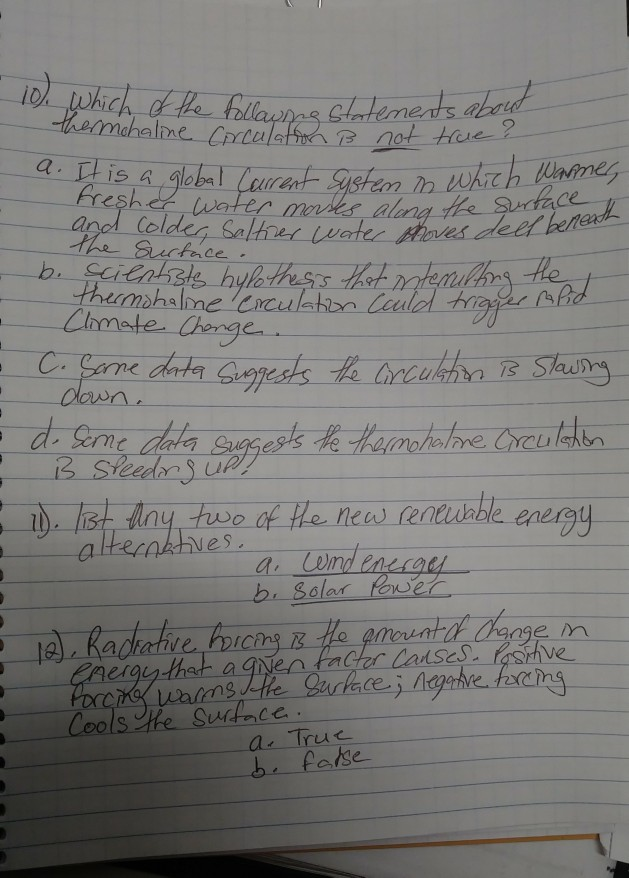 10). Which of the following statements about
thermohaline Circulation is not true?
a. It is a global Current System in which Warmer,
fresher water moves along the surface
and Colder, Saltier water moves deep beneath
the Surface.
b. Scientists hypothesis that interrupting the
thermohaline circulation Could trigger rapid
Climate Change.
C. Some data Suggests the Circulation is Slowing
down.
d. Some data suggests the thermohaline Circulation
is speeding up.
11). list Any two of the new renewable energy
alternatives.
a. Wind energy
b. Solar Power
12). Radiative forcing is the amount of Change in
energy that a given factor Causes. Positive
forcing warms the Surface; negative forcing
Cools the Surface.
a. True
b. false